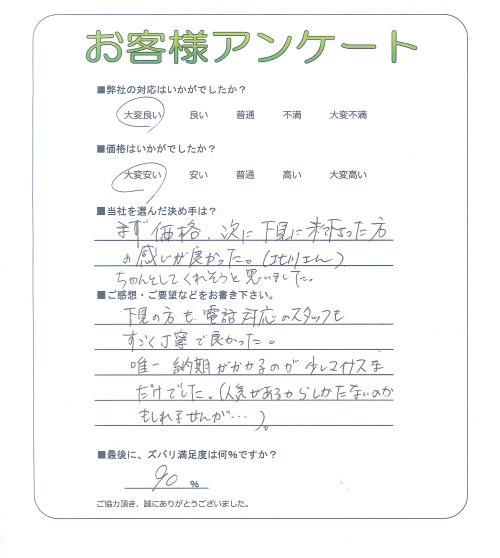 お客様アンケート
■弊社の対応はいかがでしたか？
大変良い 良い 普通 不満 大変不満
■価格はいかがでしたか？
大変安い 安い 普通 高い 大変高い
■当社を選んだ決め手は？
まず価格、次に下見に来て下さった方
の感じが良かった。（北川さん）
ちゃんとしてくれそうと思いました。
■ご感想・ご要望などをお書き下さい。
下見の方も電話対応のスタッフも
すごく丁寧で良かった。
唯一納期がかかるのが少しマイナスな
だけでした。（人気があるからしかたないのか
もしれませんが…）。
■最後に、ズバリ満足度は何％ですか？
90 ％
ご協力頂き、誠にありがとうございました。